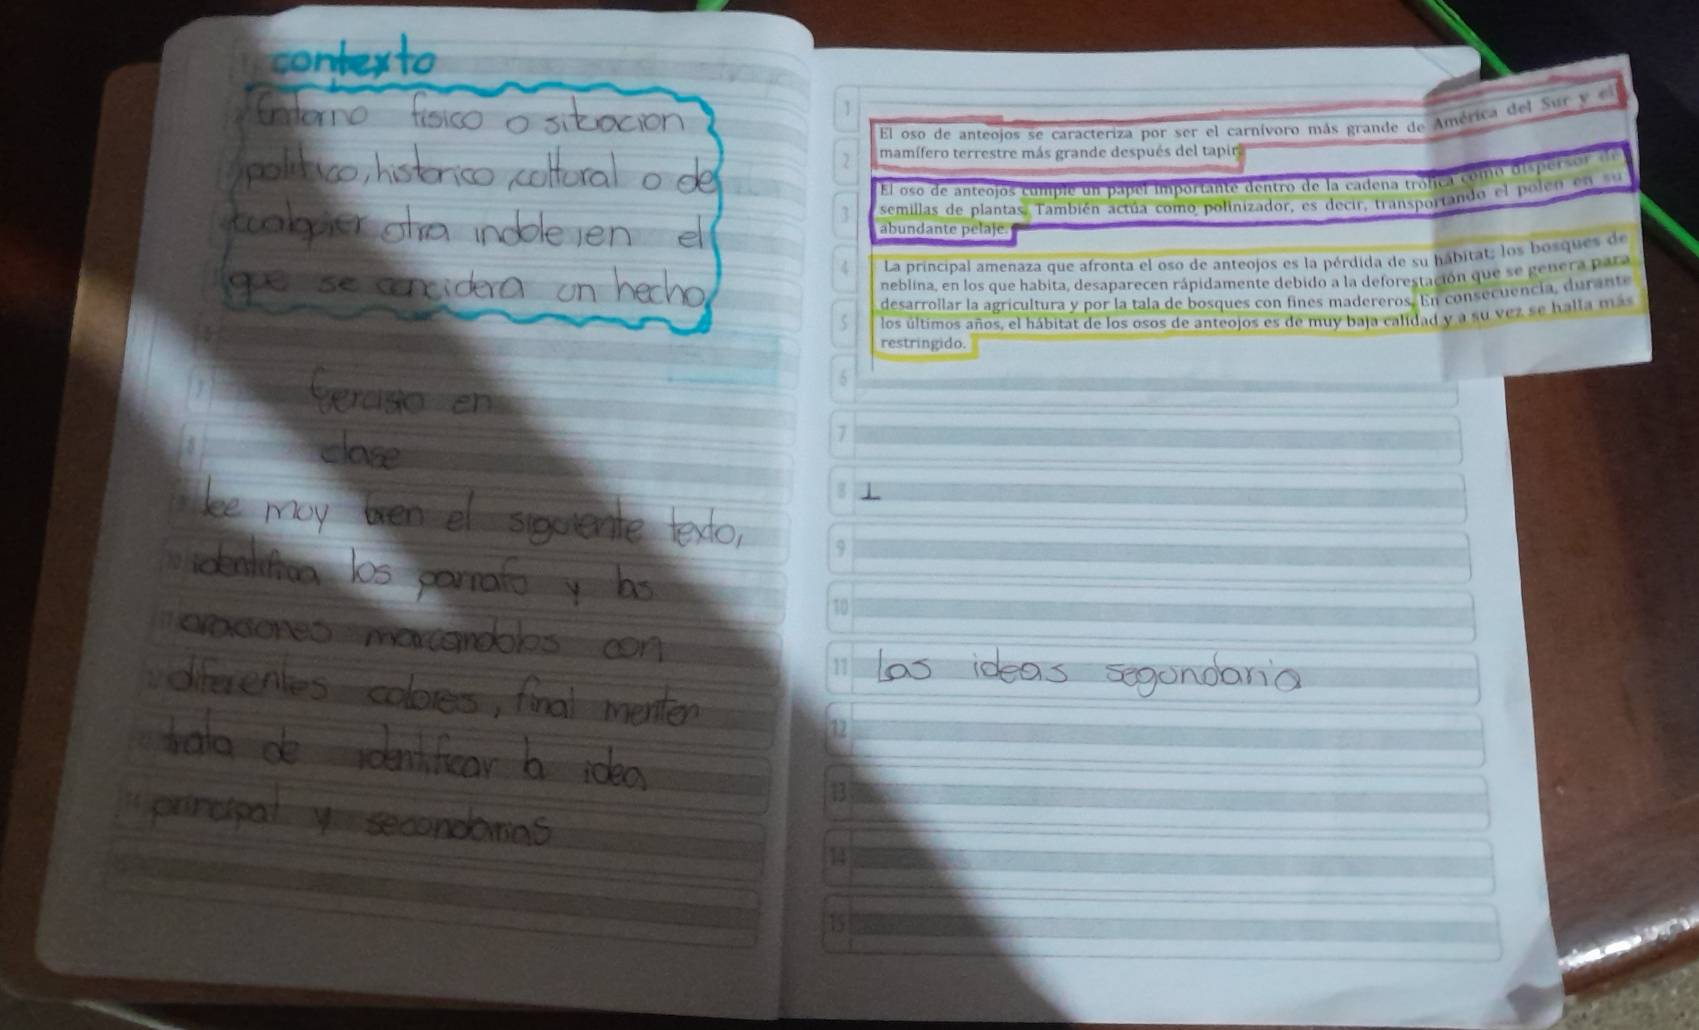 contexto
Entorno fisico o sitoacion
politico, historico, coltoral o de
cualquier otra indole, en el
que se concidera un hecho
Gercisio en
clase
lee moy bien el sigoiente texto,
identifica los parrafo y las
oraciones marcandolas con
diferentes colores, final menten
trata de identificar la idea
principal y secondarias
1
2
3
4
5
6
7
8
9
10
11
12
13
14
15
El oso de anteojos se caracteriza por ser el carnívoro más grande de América del Sur y el
mamífero terrestre más grande después del tapir.
El oso de anteojos cumple un papel importante dentro de la cadena trófica como dispersor de
semillas de plantas. También actúa como polinizador, es decir, transportando el polen en su
abundante pelaje.
La principal amenaza que afronta el oso de anteojos es la pérdida de su hábitat; los bosques de
neblina, en los que habita, desaparecen rápidamente debido a la deforestación que se genera para
desarrollar la agricultura y por la tala de bosques con fines madereros. En consecuencia, durante
los últimos años, el hábitat de los osos de anteojos es de muy baja calidad y a su vez se halla más
restringido.
1
Las ideas segondaria